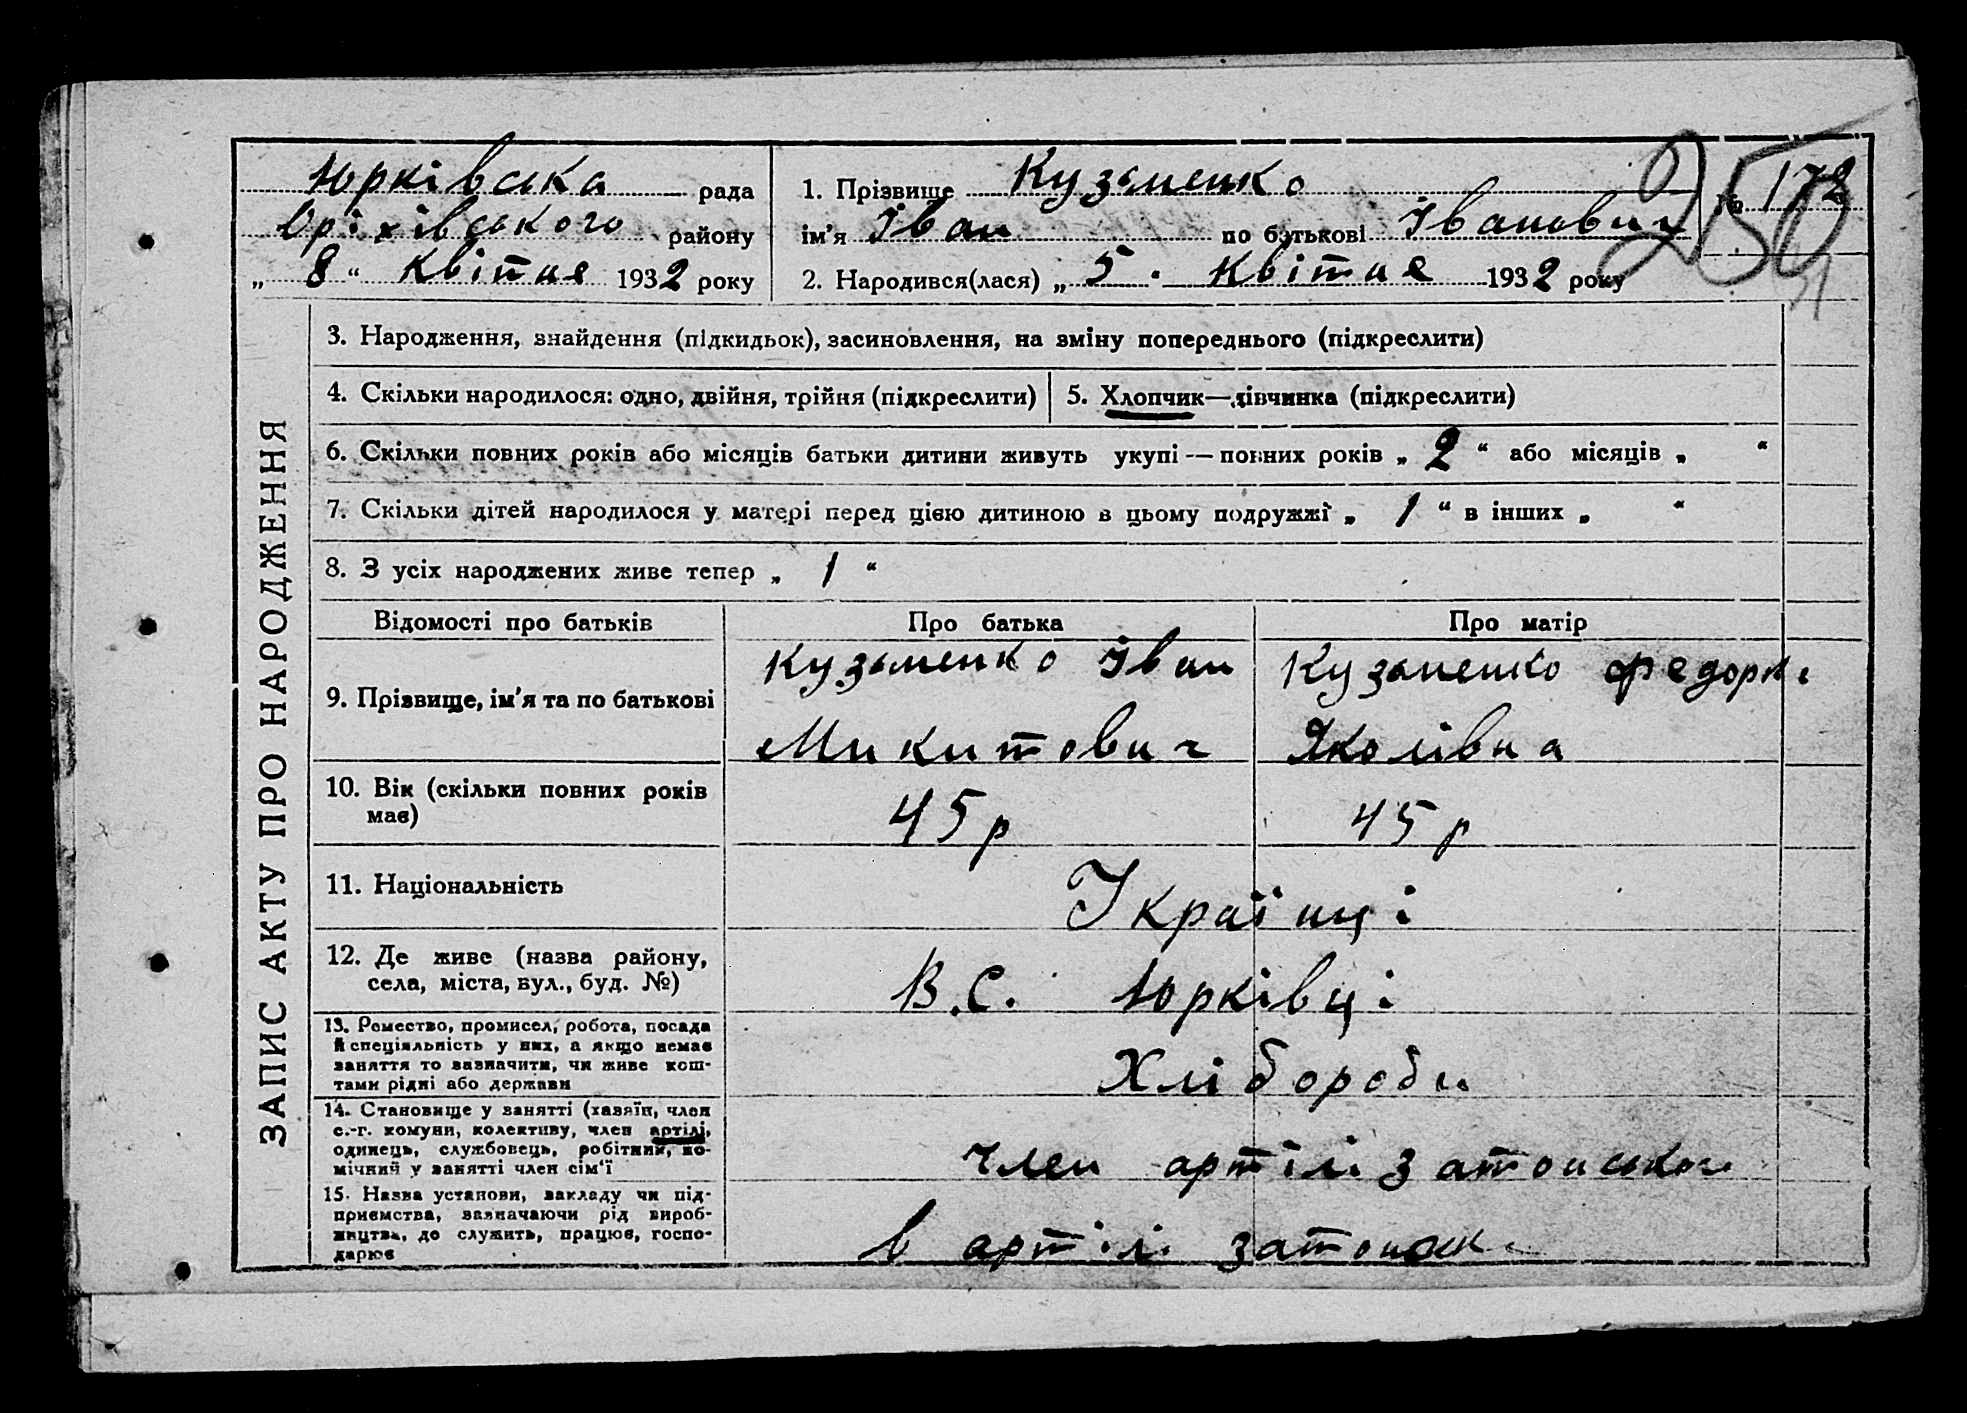 Юрківська рада
Оріхівського району
„ 8 “ квітня 1932 року
1. Прізвище Кузьменко
ім'я Іван по батькові Іванович
2. Народився(лася) „ 5 . квітня 1932 року
№ 178
ЗАПИС АКТУ ПРО НАРОДЖЕННЯ
3. Народження, знайдення (підкидьок), засиновлення, на зміну попереднього (підкреслити)
4. Скільки народилося: одно, двійня, трійня (підкреслити)
5. Хлопчик—дівчинка (підкреслити)
6. Скільки повних років або місяців батьки дитини живуть укупі — повних років „ 2 “ або місяців „ “
7. Скільки дітей народилося у матері перед цією дитиною в цьому подружжі „ 1 “ в інших „ “
8. З усіх народжених живе тепер „ 1 “
Відомості про батьків
Про батька
Про матір
9. Прізвище, ім'я та по батькові
Кузьменко Іван
Микитович
Кузьменко
Яколівна
10. Вік (скільки повних років
має)
45 р
45 р
11. Національність
Українці
12. Де живе (назва району,
села, міста, вул., буд. №)
В.С. Юрківці
13. Ремество, промисел, робота, посада
й спеціяльність у них, а якщо немає
заняття то зазначити, чи живе кош-
тами рідні або держави
Хлібороби
14. Становище у занятті (хазяїн, член
с.-г. комуни, колективу, член артілі,
одинець, службовець, робітник, по-
мічний у занятті член сім'ї
член артілі Затонського
15. Назва установи, закладу чи під-
приємства, зазначаючи рід вироб-
ництва, де служить, працює, госпо-
дарює
в артілі